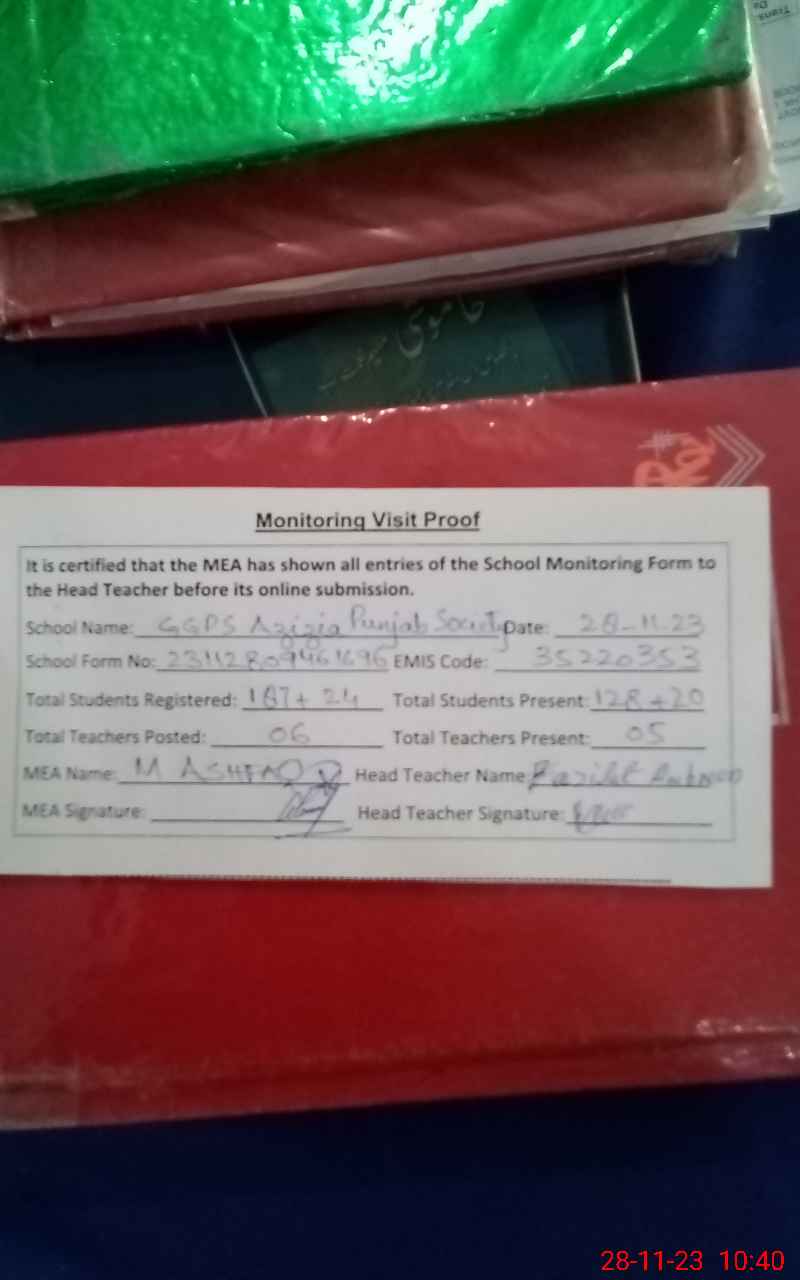 خاموشی
Monitoring Visit Proof
It is certified that the MEA has shown all entries of the School Monitoring Form to
the Head Teacher before its online submission.
School Name: GGPS Azizia Punjab Society Date: 28-11-23
School Form No: 23112809461696 EMIS Code: 35220353
Total Students Registered: 187+24 Total Students Present: 128+20
Total Teachers Posted: 06 Total Teachers Present: 05
MEA Name: M ASHFAQ Head Teacher Name:
MEA Signature: Head Teacher Signature:
28-11-23 10:40